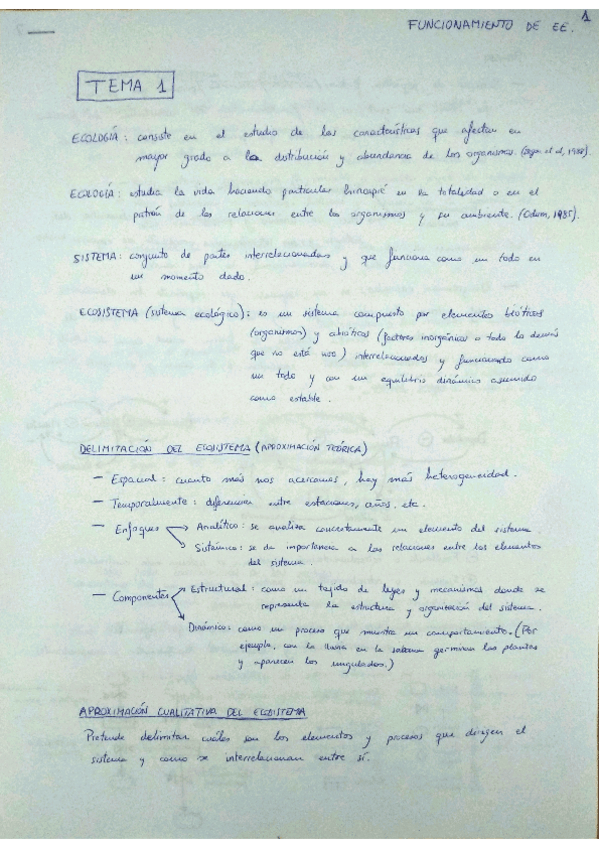 1
FUNCIONAMIENTO DE EE.
TEMA 1
ECOLOGÍA: consiste en el estudio de las características que afectan en
mayor grado a la distribución y abundancia de los organismos. (et al, 1988).
ECOLOGÍA: estudia la vida haciendo particular hincapié en la totalidad o en el
patrón de las relaciones entre los organismos y su ambiente. (Odum, 1985).
SISTEMA: conjunto de partes interrelacionadas y que funciona como un todo en
un momento dado.
ECOSISTEMA (sistema ecológico): es un sistema compuesto por elementos bióticos
(organismos) y abióticos (factores inorgánicos o todo lo demás
que no está vivo) interrelacionados y funcionando como
un todo y con un equilibrio dinámico asumido
como estable.
DELIMITACIÓN DEL ECOSISTEMA (APROXIMACIÓN TEÓRICA)
— Espacial: cuanto más nos acercamos, hay más heterogeneidad.
— Temporalmente: diferencias entre estaciones, años, etc.
— Enfoques → Analítico: se analiza concretamente un elemento del sistema.
→ Sistémico: se da importancia a las relaciones entre los elementos
del sistema.
— Componentes → Estructural: como un tejido de leyes y mecanismos donde se
representa la estructura y organización del sistema.
→ Dinámico: como un proceso que muestra un comportamiento. (Por
ejemplo, con la lluvia en la sabana germinan las plantas
y aparecen los ungulados.)
APROXIMACIÓN CUALITATIVA DEL ECOSISTEMA
Pretende delimitar cuáles son los elementos y procesos que dirigen el
sistema y como se interrelacionan entre sí.